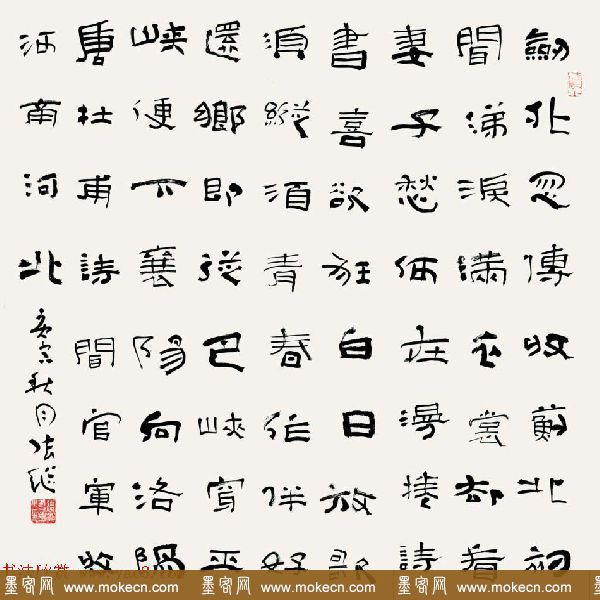 劒外忽傳收薊北初
聞涕淚滿衣裳却看
妻子愁何在漫捲詩
書喜欲狂白日放歌
須縱酒青春作伴好
還鄉即從巴峽穿巫
峽便下襄陽向洛陽
唐杜甫詩聞官軍收
河南河北
庚寅秋月張继
墨客网 www.mokecn.com 墨客网 www.mokecn.com 墨客网 www.mokecn.com 墨客网